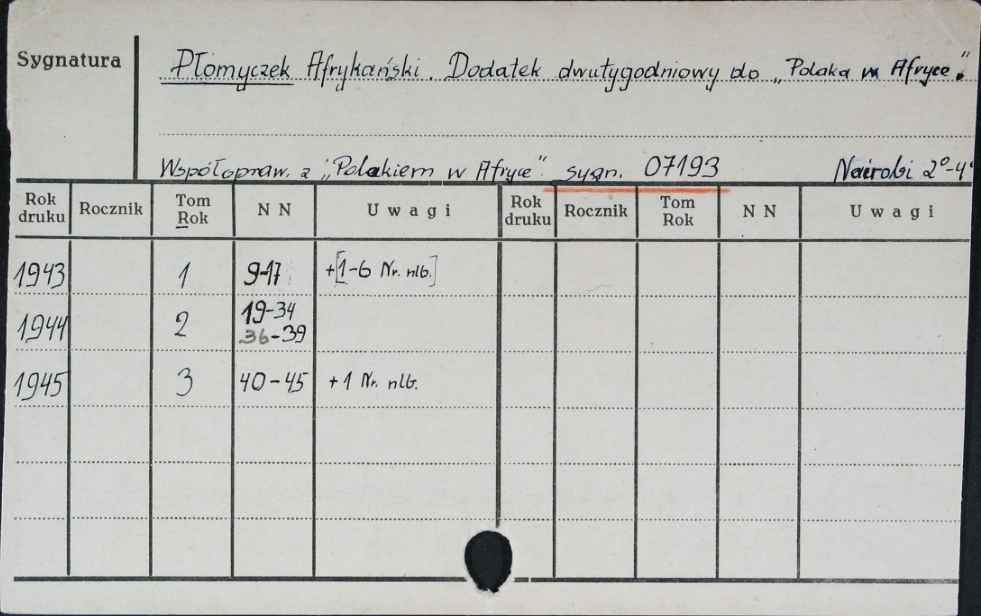 Sygnatura
Płomyczek Afrykański. Dodatek dwutygodniowy do „Polaka w Afryce."
Współopraw. z „Polakiem w Afryce" sygn. 07193 Nairobi 2°-4°
Rok druku Rocznik Tom Rok N N Uwagi Rok druku Rocznik Tom Rok N N Uwagi
1943 1 9-17 +[1-6 Nr. nlb.]
1944 2 19-34
36-39
1945 3 40-45 +1 Nr. nlb.